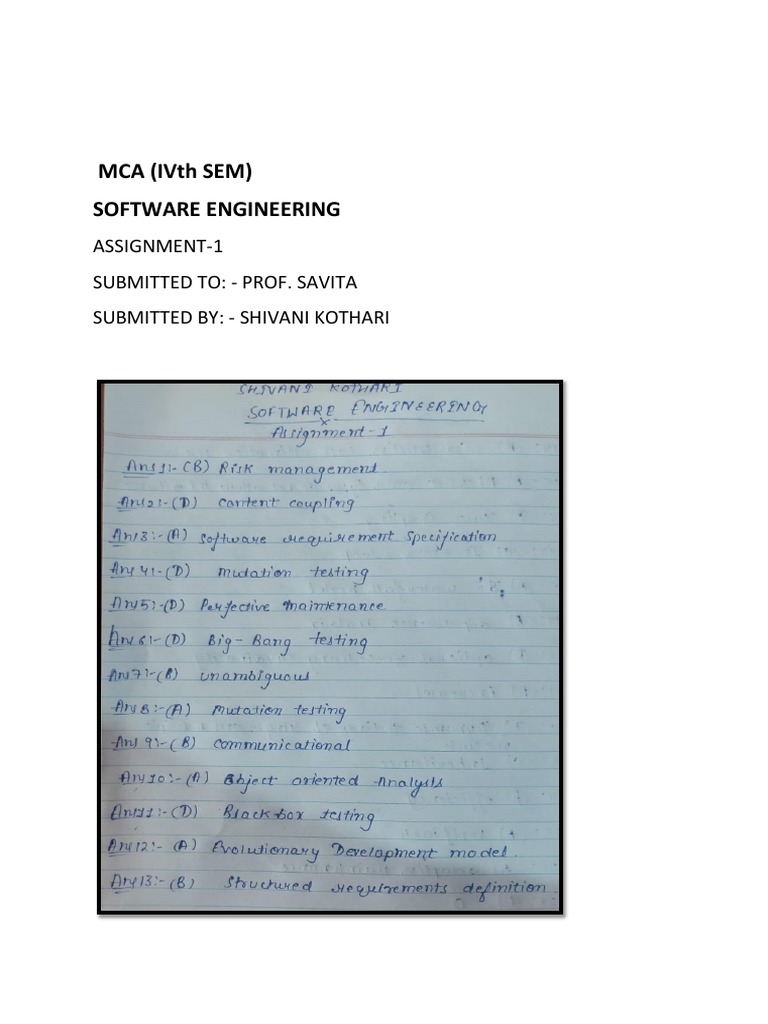 MCA (IVth SEM)
SOFTWARE ENGINEERING
ASSIGNMENT-1
SUBMITTED TO: - PROF. SAVITA
SUBMITTED BY: - SHIVANI KOTHARI
SHIVANI KOTHARI
SOFTWARE ENGINEERING
Assignment-1
Ans1:-(B) Risk management
Ans2:-(D) Content coupling
Ans3:-(A) Software requirement Specification
Ans4:-(D) Mutation testing
Ans5:-(D) Perfective Maintenance
Ans6:-(D) Big-Bang testing
Ans7:-(B) unambiguous
Ans8:-(A) Mutation testing
Ans9:-(B) Communicational
Ans10:-(A) Object oriented Analysis
Ans11:-(D) Black box testing
Ans12:-(A) Evolutionary Development model.
Ans13:-(B) Structured requirements definition